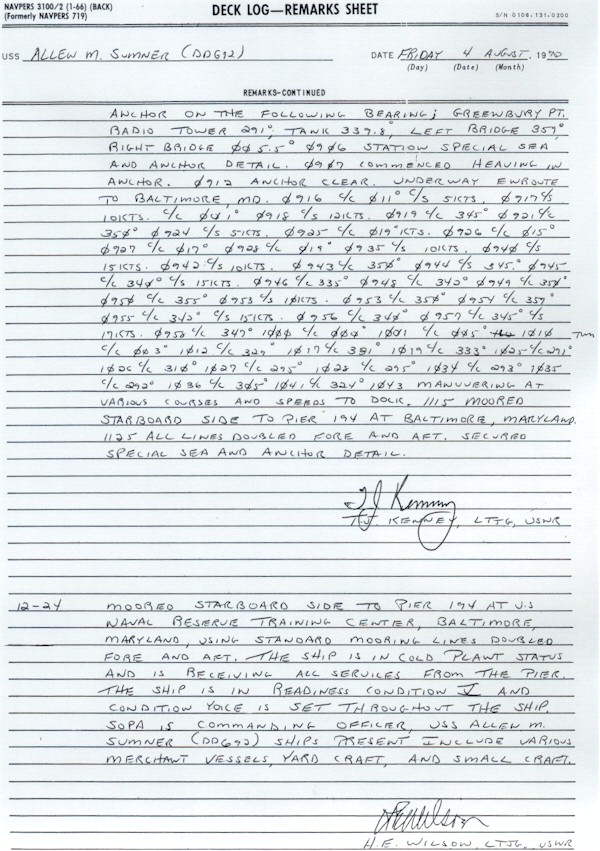 NAVPERS 3100/2 (1-66) (BACK)
(Formerly NAVPERS 719)
DECK LOG—REMARKS SHEET
S/N 0106-131-0200
USS ALLEN M. SUMNER (DD692) DATE FRIDAY 4 AUGUST, 1970
(Day) (Date) (Month)
REMARKS—CONTINUED
ANCHOR ON THE FOLLOWING BEARING; GREENBURY PT.
RADIO TOWER 291°, TANK 339.8, LEFT BRIDGE 359°
RIGHT BRIDGE ØØ5.5° Ø9Ø6 STATION SPECIAL SEA
AND ANCHOR DETAIL. Ø9Ø7 COMMENCED HEAVING IN
ANCHOR. Ø912 ANCHOR CLEAR. UNDERWAY ENROUTE
TO BALTIMORE, MD. Ø916 C/C Ø11° C/S 5KTS. Ø917 C/S
10KTS. C/C ØØ1° Ø918 C/S 12KTS. Ø919 C/C 345° Ø921 C/C
35Ø° Ø924 C/S 5KTS. Ø925 C/C Ø19° KTS. Ø926 C/C Ø15°
Ø927 C/C Ø17° Ø928 C/C Ø19° Ø935 C/S 10KTS. Ø94Ø C/S
15KTS. Ø942 C/S 10KTS. Ø943 C/C 35Ø° Ø944 C/S 345.° Ø945
C/C 34Ø° C/S 15KTS. Ø946 C/C 335° Ø948 C/C 342° Ø949 C/C 35Ø°
Ø95Ø C/C 355° Ø953 C/S 1ØKTS. Ø953 C/C 35Ø° Ø954 C/C 359°
Ø955 C/C 342° C/S 15KTS. Ø956 C/C 34Ø° Ø957 C/C 345° C/S
17KTS. Ø958 C/C 347° 1ØØØ C/C ØØØ° 1ØØ1 C/C ØØ5° 1Ø1Ø
C/C ØØ3° 1Ø12 C/C 329° 1Ø17 C/C 331° 1Ø19 C/C 333° 1Ø25 C/C 291°
1Ø26 C/C 31Ø° 1Ø27 C/C 295° 1Ø28 C/C 295° 1Ø34 C/C 293° 1Ø35
C/C 292° 1Ø36 C/C 3Ø5° 1Ø41 C/C 324° 1Ø43 MANUVERING AT
VARIOUS COURSES AND SPEEDS TO DOCK. 1115 MOORED
STARBOARD SIDE TO PIER 194 AT BALTIMORE, MARYLAND.
1125 ALL LINES DOUBLED FORE AND AFT. SECURED
SPECIAL SEA AND ANCHOR DETAIL.
T.J. KENNEY, LTJG, USNR
12-24 MOORED STARBOARD SIDE TO PIER 194 AT U.S
NAVAL RESERVE TRAINING CENTER, BALTIMORE,
MARYLAND, USING STANDARD MOORING LINES DOUBLED
FORE AND AFT. THE SHIP IS IN COLD PLANT STATUS
AND IS RECEIVING ALL SERVICES FROM THE PIER.
THE SHIP IS IN READINESS CONDITION V AND
CONDITION YOKE IS SET THROUGHOUT THE SHIP.
SOPA IS COMMANDING OFFICER, USS ALLEN M.
SUMNER (DD692) SHIPS PRESENT INCLUDE VARIOUS
MERCHANT VESSELS, YARD CRAFT, AND SMALL CRAFT.
H.E. WILSON, LTJG, USNR